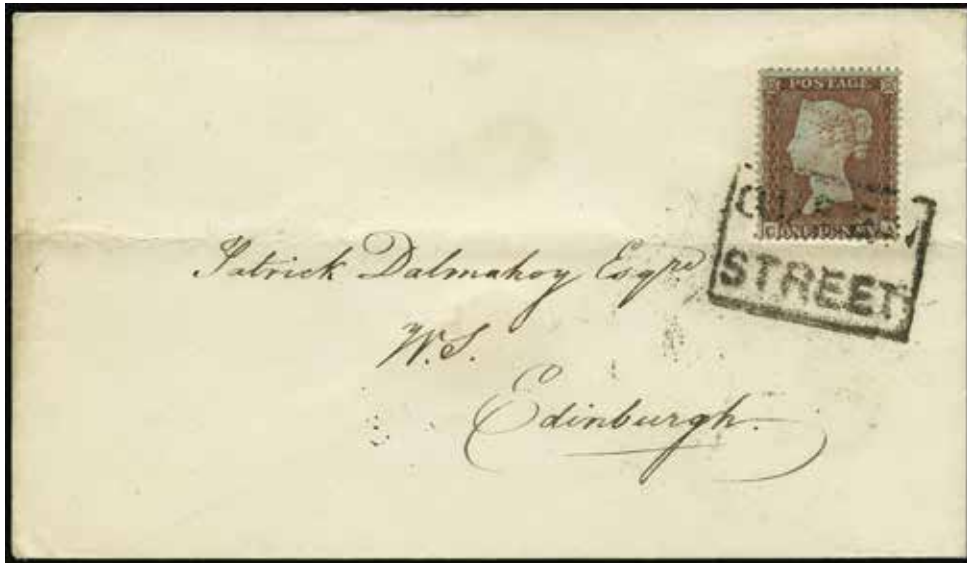 POSTAGE
QUEEN
STREET
Patrick Dalmahoy Esqre
W.S.
Edinburgh.